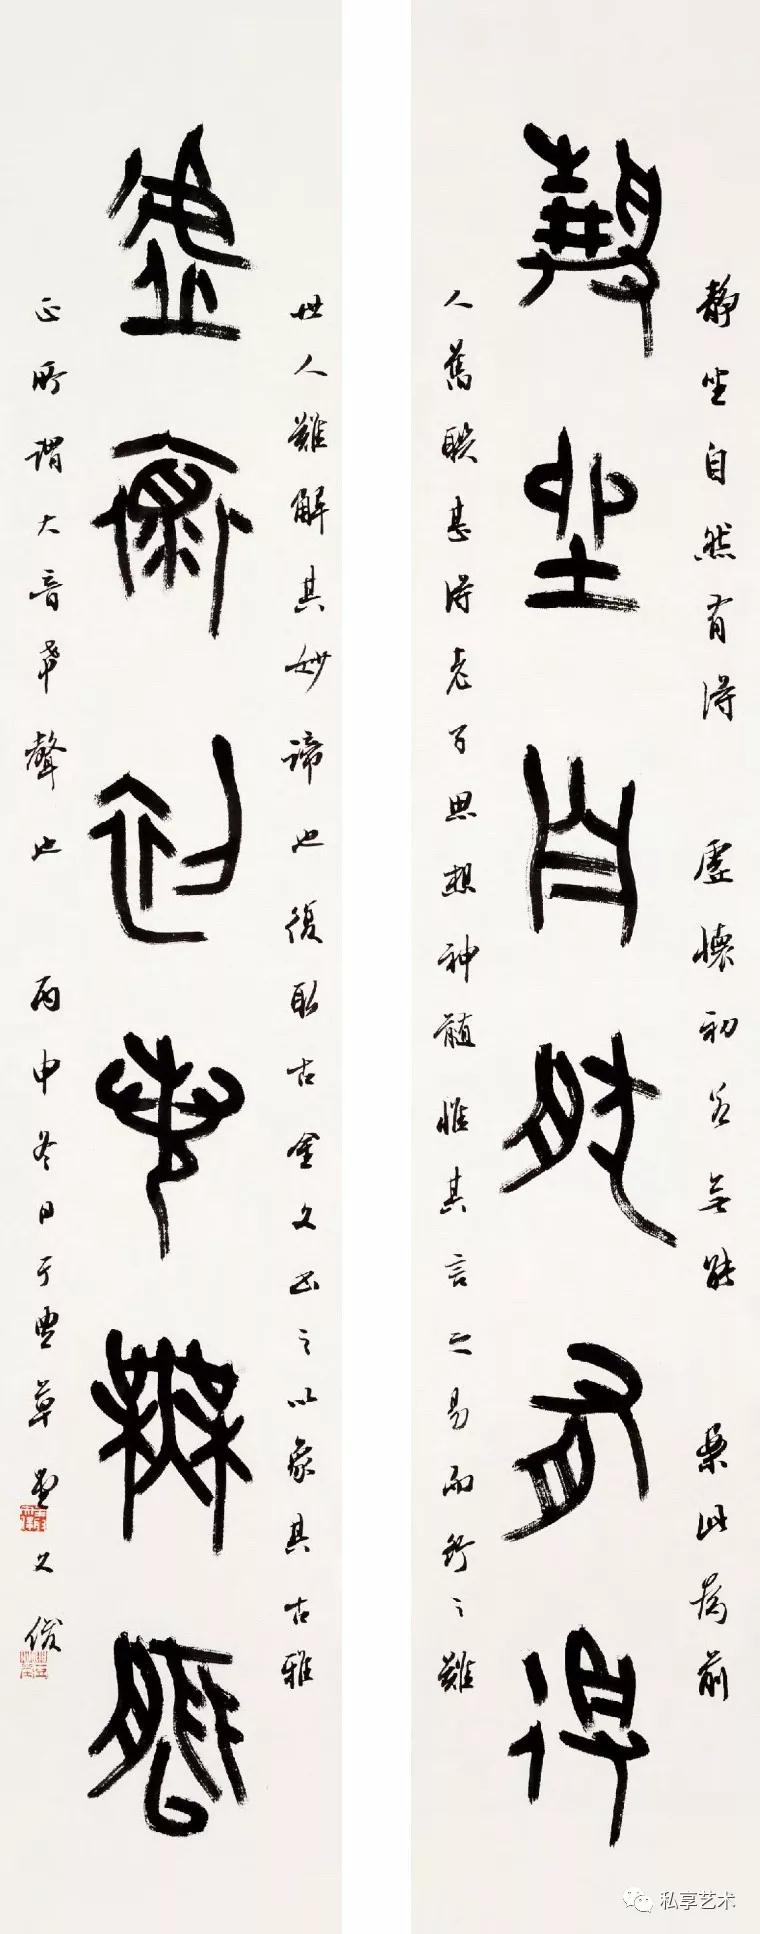 靜坐自然有得 虛懷初若無能 案此為前
靜坐自然有得
人舊聯甚得老子思想神髓惟其言之易而行之難
世人難解其妙諦也復取古金文書之以象其古雅
虛懷初若無能
正所謂大音希聲也 丙申冬日于豊草堂 文俊
私享艺术